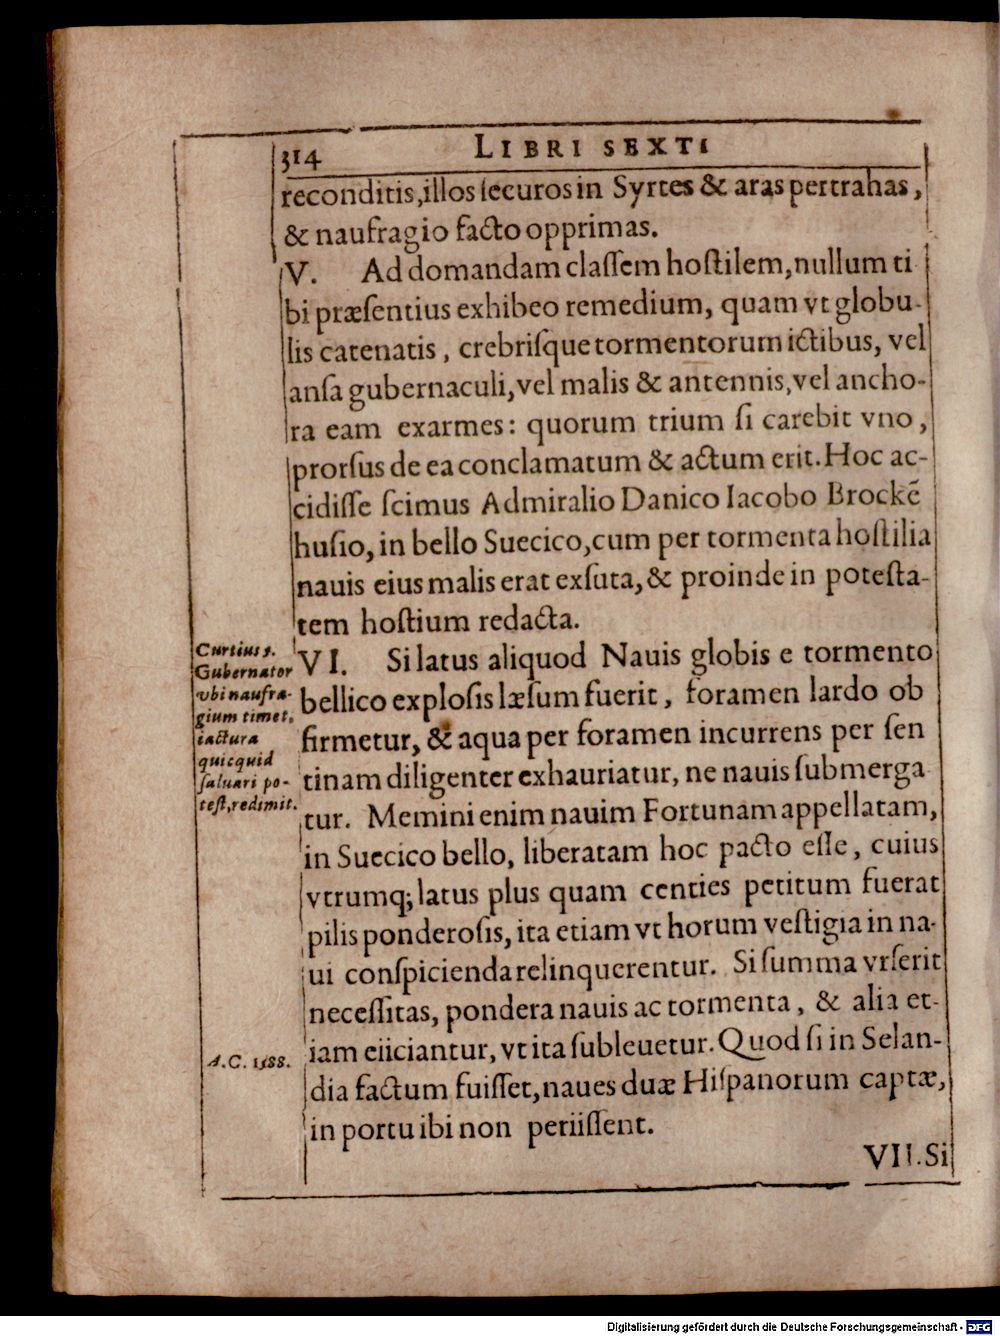 314 LIBRI SEXTI
reconditis,illos ſecuros in Syrtes & aras pertrahas,
& naufragio facto opprimas.
V. Ad domandam claſſem hoſtilem,nullum ti
bi præſentius exhibeo remedium, quam vt globu-
lis catenatis, crebriſque tormentorum ictibus, vel
anſa gubernaculi,vel malis & antennis,vel ancho-
ra eam exarmes: quorum trium ſi carebit vno,
prorſus de ea conclamatum & actum erit. Hoc ac-
cidiſſe ſcimus Admiralio Danico Iacobo Brockē
huſio, in bello Suecico,cum per tormenta hoſtilia
nauis eius malis erat exſuta,& proinde in poteſta-
tem hoſtium redacta.
Curtius 5.
Gubernator
vbi naufra-
gium timet,
iactura
quicquid
ſaluari po-
teſt,redimit.
VI. Si latus aliquod Nauis globis e tormento
bellico exploſis læſum fuerit, foramen lardo ob
firmetur, & aqua per foramen incurrens per ſen
tinam diligenter exhauriatur, ne nauis ſubmerga
tur. Memini enim nauim Fortunam appellatam,
in Suecico bello, liberatam hoc pacto eſſe, cuius
vtrumq; latus plus quam centies petitum fuerat
pilis ponderoſis, ita etiam vt horum veſtigia in na-
ui conſpicienda relinquerentur. Si ſumma vrſerit
neceſſitas, pondera nauis ac tormenta, & alia et-
iam eiiciantur, vt ita ſubleuetur. Quod ſi in Selan-
A.C. 1588.
dia factum fuiſſet,naues duæ Hiſpanorum captæ,
in portu ibi non periiſſent.
VII. Si
Digitalisierung gefördert durch die Deutsche Forschungsgemeinschaft - DFG